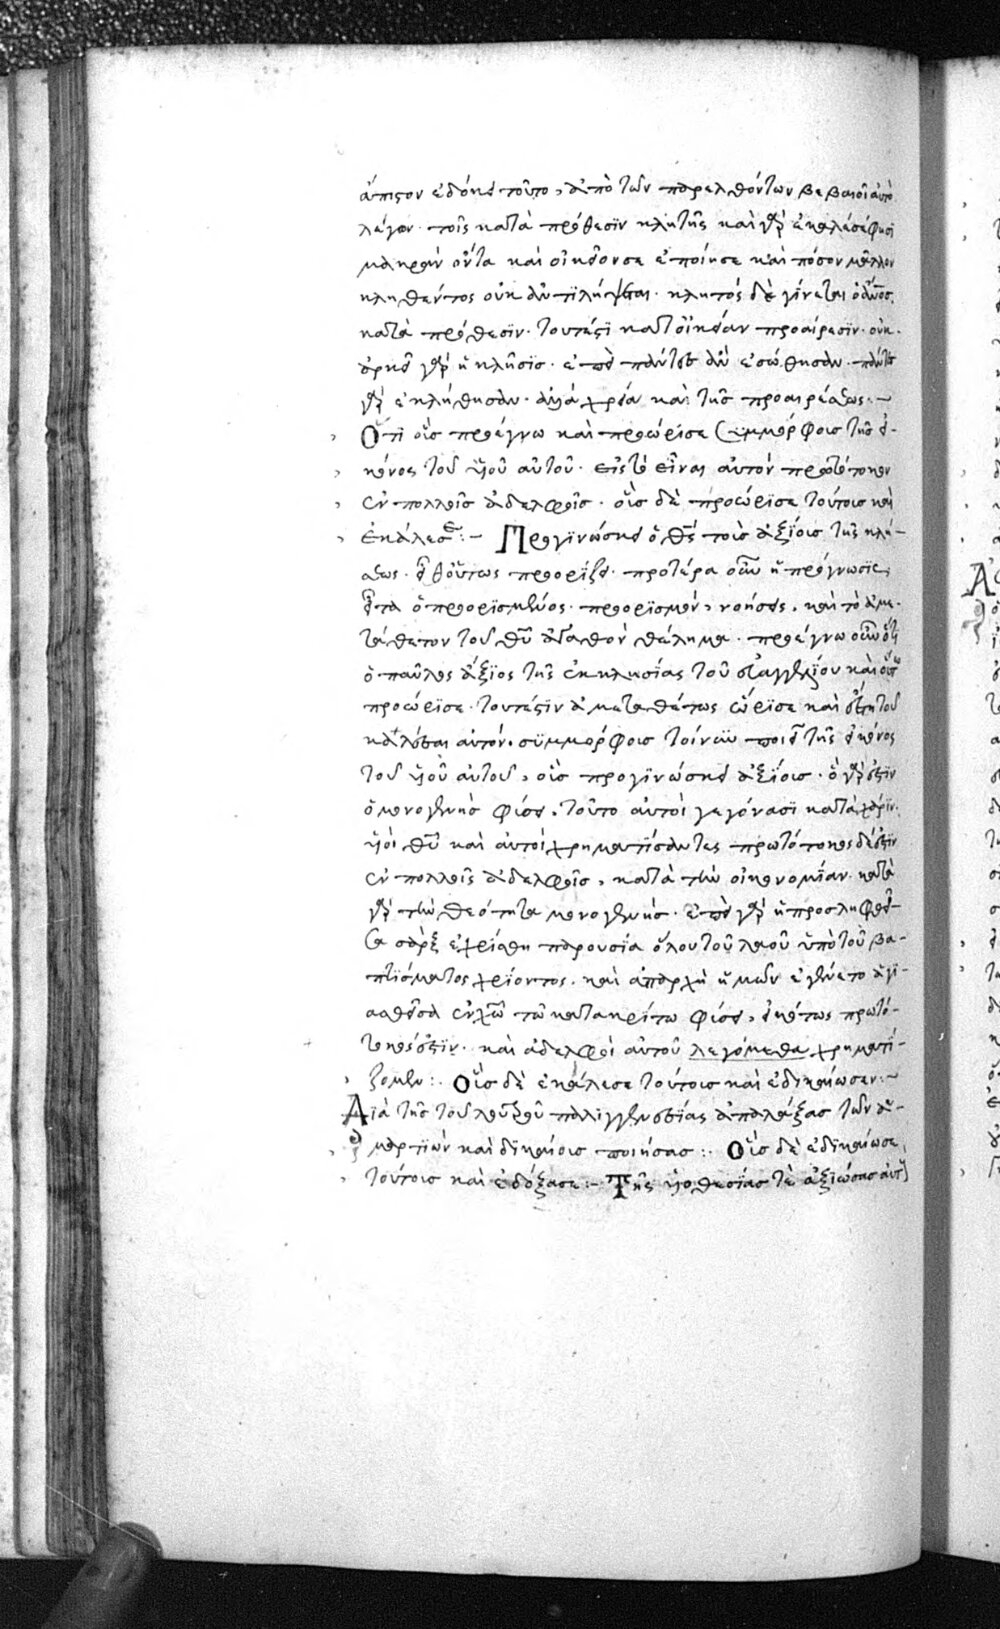 ἄπιστον ἐδόκει τοῦτο, ἀπὸ τῶν παρελθόντων βεβαιοῖ αὐτὸ
λέγων· τοῖς κατὰ πρόθεσϊν κλητοῖς καὶ γὰρ ἐκάλεσέ φησϊ
μακρὰν ὄντα καὶ οἰκείους ἐποίησε καὶ πόσον μᾶλλον
κληθέντος οὐκ ἀντιλήψεται· κλητὸς δὲ γίνεται ὁ ἄνος.
κατὰ πρόθεσϊν· τουτέστϊ κατ' οἰκείαν προαίρεσϊν· οὐκ
ἀρκεῖ γὰρ ἡ κλῆσϊς· ἐπεὶ πάντες ἂν ἐσώθησαν· πάντες
γὰρ ἐκλήθησαν· ἀλλὰ χρεία καὶ τῆς προαιρέσεως:–
Ὅτϊ οὓς προέγνω καὶ προώρϊσε συμμόρφους τῆς εἰ-
κόνος τοῦ ϋἱοῦ αὐτοῦ· εἰς τὸ εἶναι αὐτὸν πρωτότοκον
ἐν πολλοῖς ἀδελφοῖς· οὓς δὲ προώρϊσε τούτους καὶ
ἐκάλεσεν:– Προγϊνώσκει ὁ θς τοὺς ἀξΐους τῆς κλή-
σεως· εἶθ' οὕτως προορΐζει· προτέρα οὖν ἡ πρόγνωσϊς,
εἶτα ὁ προορϊσμός· προορϊσμὸν, νοήσεις, καὶ τὸ ἀμε-
τάθετον τοῦ θῦ ἀγαθὸν θέλημα· προέγνω οὖν ὅτϊ
ὁ παῦλος ἄξϊος τῆς ἐκκλησίας τοῦ εὐαγγελΐου καὶ οὕτω
προώρϊσε· τουτέστϊν ἀμεταθέτως ὥρϊσε καὶ
καλέσαι αὐτόν· σϋμμόρφους τοίνυν ποιεῖ τῆς εἰκόνος
τοῦ ϋἱοῦ αὐτοῦ, οὓς προγϊνώσκει ἀξΐους· ὃ γάρ ἐστϊν
ὁ μονογενὴς φύσει, τοῦτο αὐτοὶ γεγόνασϊ κατὰ χάρϊν·
ϋἱοὶ θῦ καὶ αὐτοὶ χρηματίσαντες πρωτότοκος δέ ἐστϊν
ἐν πολλοῖς ἀδελφοῖς, κατὰ τὴν οἰκονομΐαν· κατὰ
γὰρ τὴν θεότητα μονογενής· ἐπεὶ γὰρ ἡ προσληφθεῖ-
σα σὰρξ ἐχρίσθη παρουσία ὅλου τοῦ λαοῦ ὑπὸ τοῦ βα-
πτίσματος χρίοντος· καὶ ἀπαρχὴ ἡμῶν ἐγένετο ἁγϊ-
ασθεῖσα ἐν χῶ τῶ κατακρίτω φύσει, εἰκότως πρωτό-
τοκός ἐστϊν· καὶ ἀδελφοὶ αὐτοῦ λεγόμεθα χρηματί-
ζομεν:· Οὓς δὲ ἐκάλεσε τούτους καὶ ἐδικαίωσεν:–
Διὰ τῆς τοῦ λουτροῦ παλϊγγενεσΐας ἀπαλλάξας τῶν ἁ-
μαρτϊῶν καὶ δϊκαίους ποιήσας:· Οὓς δὲ ἐδϊκαίωσε,
τούτους καὶ ἐδόξασε:– Τῆς ϋἱοθεσΐας τὲ ἀξϊώσας αὐτοὺς